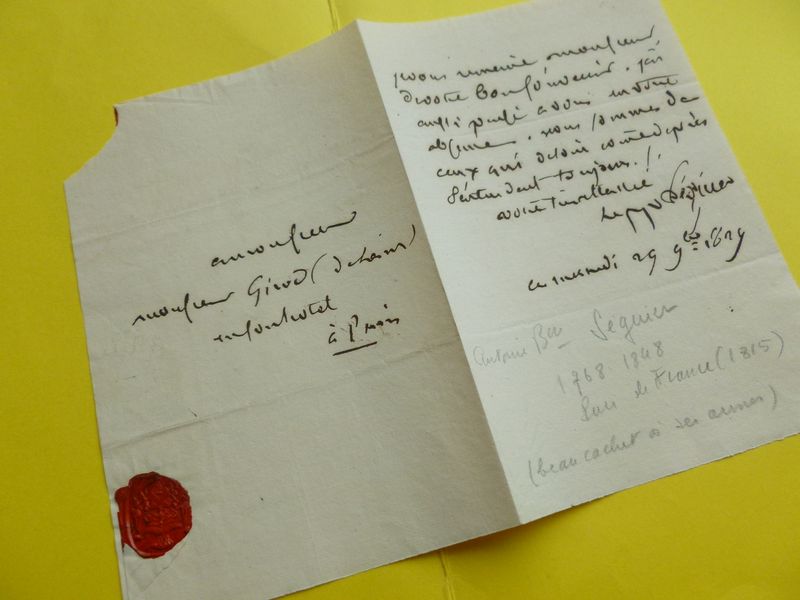 a monsieur
monsieur Girod (de L'ain)
en son hotel
à Paris
je vous remercie monsieur
de votre bon souvenir. j'ai
aussi pensé a vous
absence. nous sommes de
ceux qui de loin comme de près
s'entendent toujours.
votre
Séguier
ce mardi 29 9bre 1829
Antoine Bon Séguier
1768-1848
Pair de France (1815)
(beau cachet à ses armes)